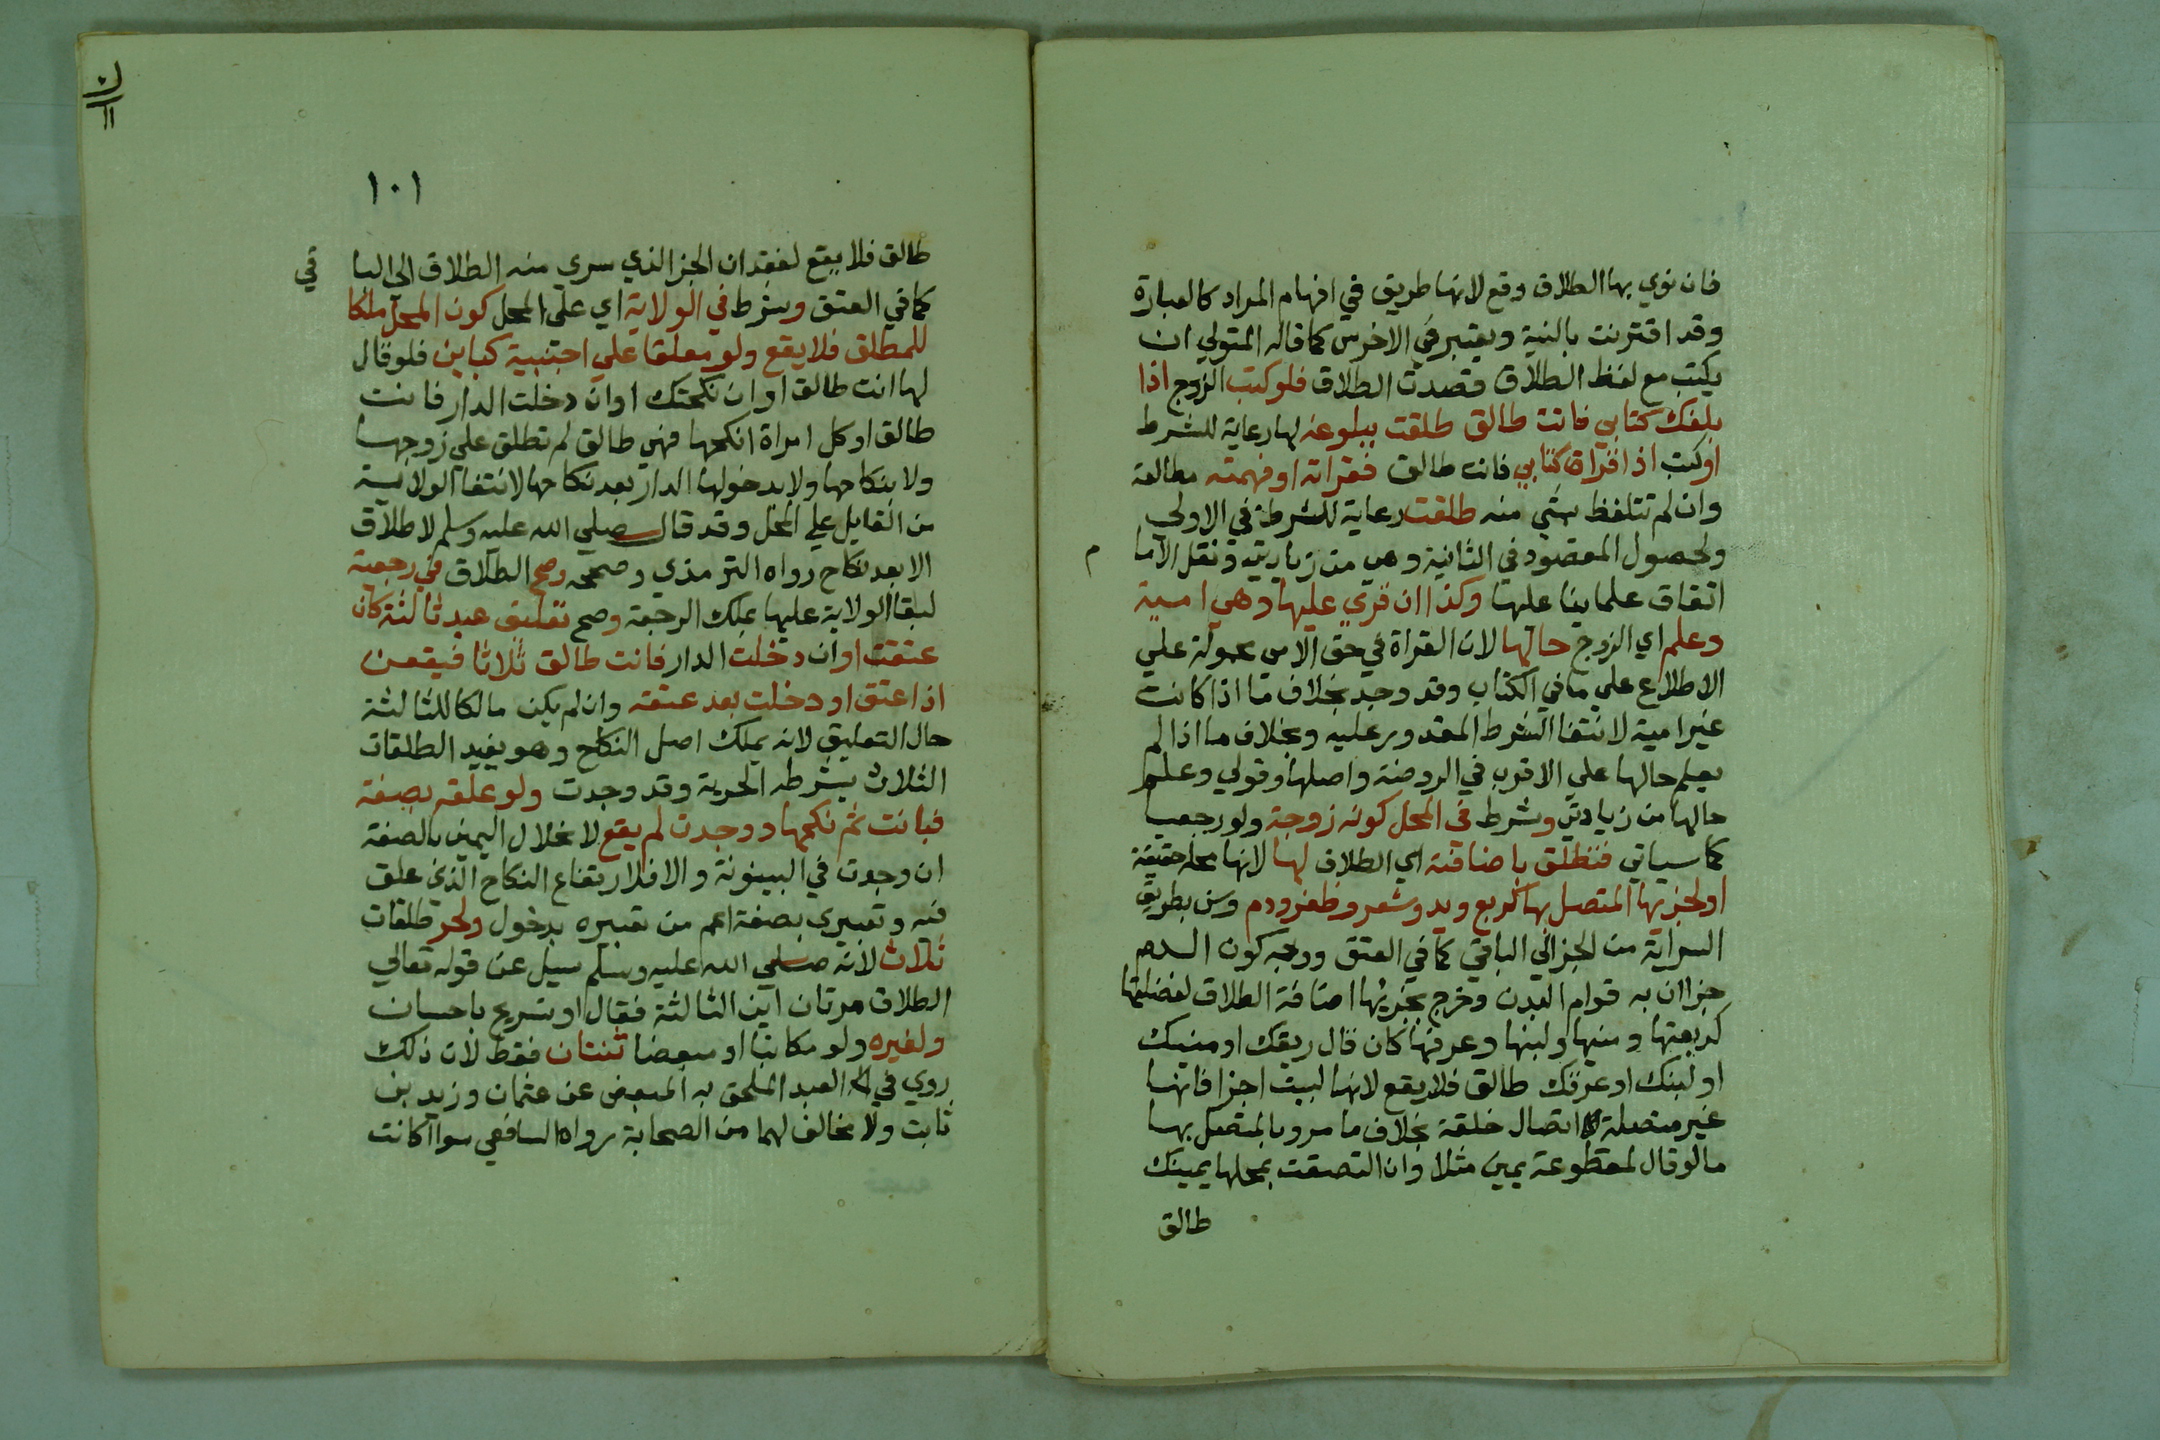 فان نوي بها الطلاق وقع لانها طريق في افهام المراد كالعبارة
وقد اقترنت بالنية ويعتبر في الاخرس كما قاله المتولي ان
يكتب مع لفظ الطلاق قصدت الطلاق فلو كتب الزوج اذا
بلغك كتابي فانت طالق طلقت ببلوغه لها رعاية للشرط
او كتب اذا قرات كتابي فانت طالق فقراته او فهمته مطالعة
وان لم تتلفظ بشي منه طلقت رعاية للشرط في الاولي
ولحصول المقصود في الثانية وهي من زيادتي ونقل الاما م
اتفاق علماينا عليها وكذا ان قري عليها وهي امية
وعلم اي الزوج حالها لان القراة في حق الامي محمولة علي
الاطلاع علي ما في الكتاب وقد وجد بخلاف ما اذا كانت
غير امية لانتفا الشرط المقدور عليه وبخلاف ما اذا لم
يعلم حالها علي الاقرب في الروضة واصلها وقولي وعلم
حالها من زيادتي وشرط في المحل كونه زوجة ولو رجعيا
كما سياتي فتطلق باضافته اي الطلاق لها لانها محله حقيقة
او لجزيها المتصل بها كربع ويد وشعر وظفر ودم وسن بطريق
السراية من الجز الي الباقي كما في العتق ووجه كون الدم
جزا ان به قوام البدن وخرج بجزيها اضافة الطلاق لفضلتها
كريقها ومنيها ولبنها وعرقها كان قال ريقك او منيك
او لبنك او عرقك طالق فلا يقع لانها ليست اجزا فانها
غير متصلة اتصال خلقة بخلاف ما مر وبالمتصل بها
ما لو قال لمقطوعة يمين مثلا وان التصقت بمحلها يمينك
طالق
١٠١
طالق فلا يقع لفقدان الجز الذي سري منه الطلاق الي البا قي
كما في العتق وشرط في الولاية اي علي المحل كون المحل ملكا
للمطلق فلا يقع ولو معلقا علي اجنبية كباين فلو قال
لها انت طالق او ان نكحتك او ان دخلت الدار فانت
طالق او كل امراة انكحها فهي طالق لم تطلق علي زوجها
ولا بنكاحها ولا بدخولها الدار بعد نكاحها لانتفا الولاية
من القايل علي المحل وقد قال صلي الله عليه وسلم لا طلاق
الا بعد نكاح رواه الترمذي وصححه وصح الطلاق في رجعية
لبقا الولاية عليها بملك الرجعة وصح تعليق عبد ثالثة كان
عتقت او ان دخلت الدار فانت طالق ثلاثا فيقعن
اذا عتق او دخلت بعد عتقه وان لم يكن مالكا للثالثة
حال التعليق لانه يملك اصل النكاح وهو يفيد الطلقات
الثلاث بشرطه الحرية وقد وجدت ولو علقه بصفة
فبانت ثم نكحها ووجدت لم يقع لانحلال اليمين بالصفة
ان وجدت في البينونة والا فلارتفاع النكاح الذي علق
فيه وتعبيري بصفة اعم من تعبيره بدخول ولحر طلقات
ثلاث لانه صلي الله عليه وسلم سيل عن قوله تعالي
الطلاق مرتان اين الثالثة فقال او تسريح باحسان
ولغيره ولو مكاتبا او مبعضا ثنتان فقط لان ذلك
روي في العبد الملحق به المبعض عن عثمان وزيد بن
ثابت ولا مخالف لهما من الصحابة رواه الشافعي سوا اكانت